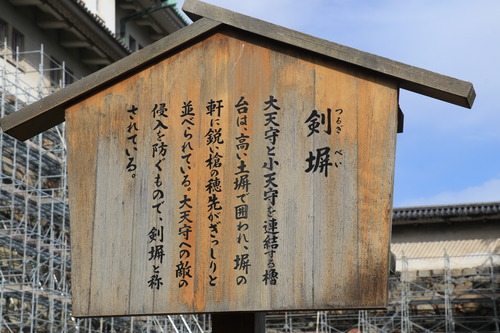 剣塀
つるぎ べい
大天守と小天守を連結する櫓
台は、高い土塀で囲われ、塀の
軒に鋭い槍の穂先がぎっしりと
並べられている。大天守への敵の
侵入を防ぐもので、剣塀と称
されている。